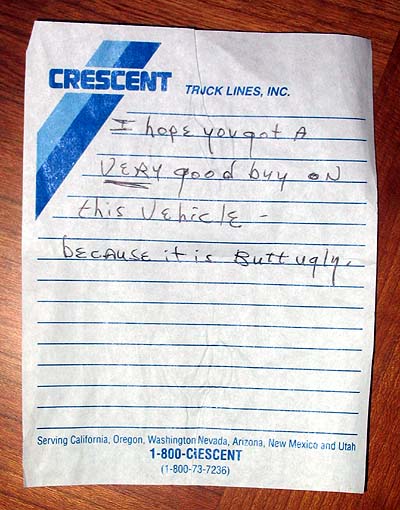 CRESCENT
TRUCK LINES, INC.
I hope you got A
VERY good buy on
this Vehicle -
because it is Butt ugly.
Serving California, Oregon, Washington Nevada, Arizona, New Mexico and Utah
1-800-CIESCENT
(1-800-73-7236)